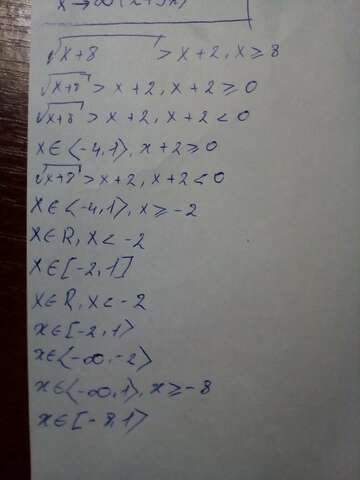 x→∞(2+3x)
√x+8 > x+2, x≥8
√x+8 > x+2, x+2≥0
√x+8 > x+2, x+2<0
x∈⟨-4,1⟩, x+2≥0
√x+8 > x+2, x+2<0
x∈⟨-4,1⟩, x≥-2
x∈R, x<-2
x∈[-2,1]
x∈R, x<-2
x∈[-2,1⟩
x∈⟨-∞,-2⟩
x∈⟨-∞,1⟩, x≥-8
x∈[-8,1⟩